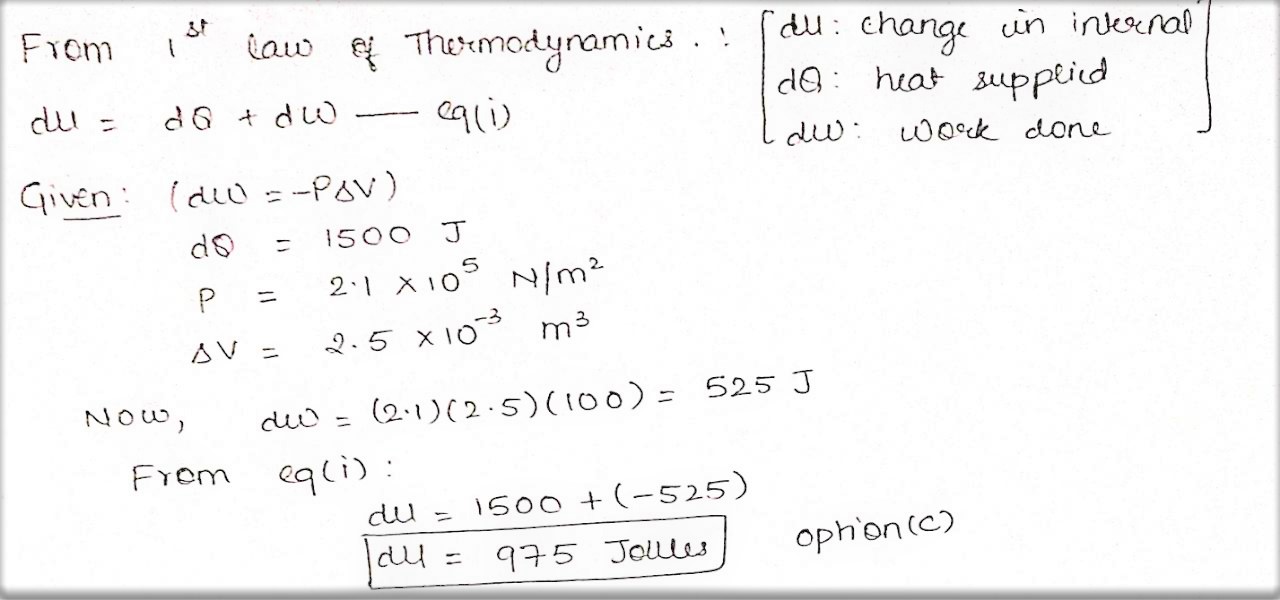 From 1st law of Thermodynamics. :
[du: change in internal
dQ: heat supplied
dw: work done]
du = dQ + dw — eq(i)
Given: (dw = -PΔV)
dQ = 1500 J
P = 2.1 × 10⁵ N/m²
ΔV = 2.5 × 10⁻³ m³
Now, dw = (2.1)(2.5)(100) = 525 J
From eq(i) :
du = 1500 + (-525)
du = 975 Joules
option(c)